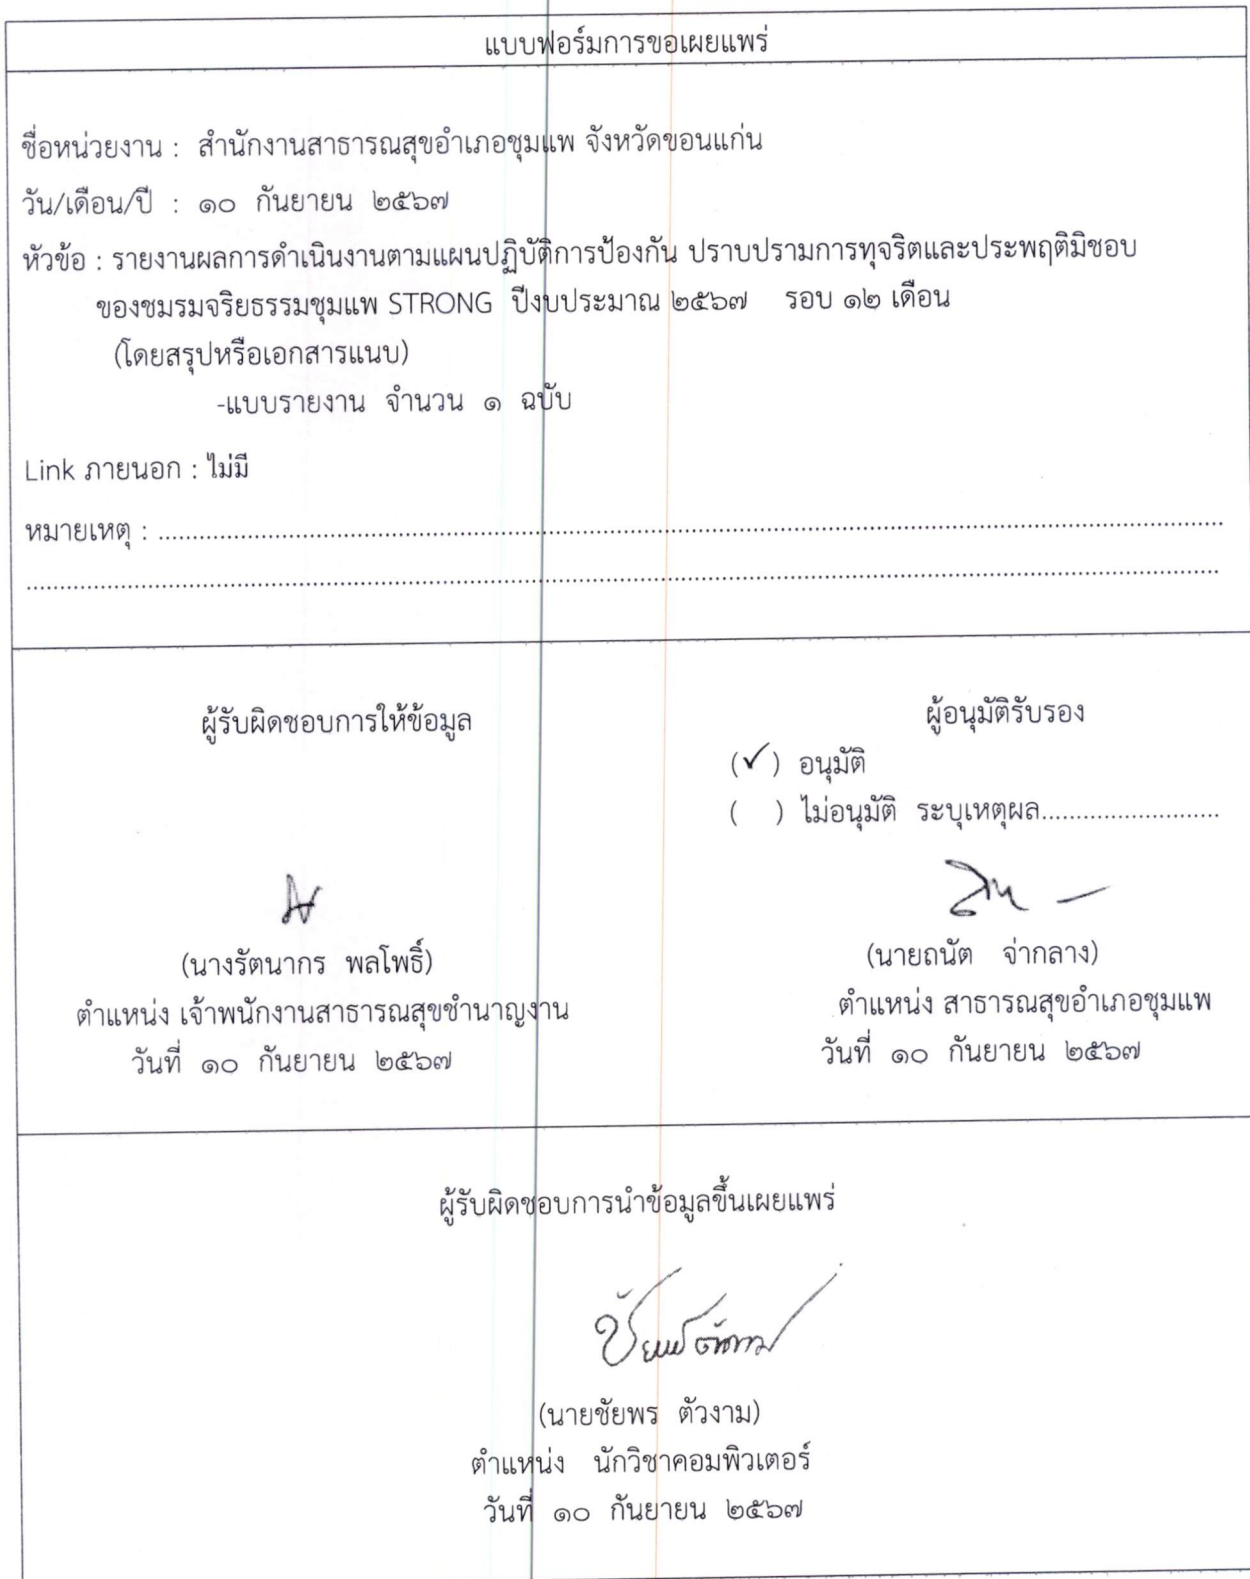 แบบฟอร์มการขอเผยแพร่
ชื่อหน่วยงาน : สำนักงานสาธารณสุขอำเภอชุมแพ จังหวัดขอนแก่น
วัน/เดือน/ปี : ๑๐ กันยายน ๒๕๖๗
หัวข้อ : รายงานผลการดำเนินงานตามแผนปฏิบัติการป้องกัน ปราบปรามการทุจริตและประพฤติมิชอบ
ของชมรมจริยธรรมชุมแพ STRONG ปีงบประมาณ ๒๕๖๗ รอบ ๑๒ เดือน
(โดยสรุปหรือเอกสารแนบ)
-แบบรายงาน จำนวน ๑ ฉบับ
Link ภายนอก : ไม่มี
หมายเหตุ : ........................................................................
........................................................................
ผู้รับผิดชอบการให้ข้อมูล
ผู้อนุมัติรับรอง
(✓) อนุมัติ
( ) ไม่อนุมัติ ระบุเหตุผล.........................
(นางรัตนากร พลโพธิ์)
ตำแหน่ง เจ้าพนักงานสาธารณสุขชำนาญงาน
วันที่ ๑๐ กันยายน ๒๕๖๗
(นายถนัต จ่ากลาง)
ตำแหน่ง สาธารณสุขอำเภอชุมแพ
วันที่ ๑๐ กันยายน ๒๕๖๗
ผู้รับผิดชอบการนำข้อมูลขึ้นเผยแพร่
(นายชัยพร ตัวงาม)
ตำแหน่ง นักวิชาคอมพิวเตอร์
วันที่ ๑๐ กันยายน ๒๕๖๗